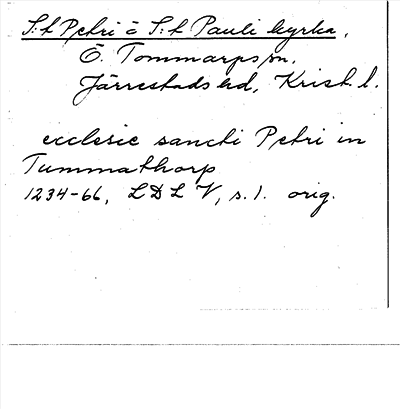 S:t Petri o S:t Pauli kyrka,
Ö. Tommarps sn,
Järrestads hd, Krist. l.
ecclesie sancti Petri in
Tummathorp
1234-66, LDL V, s. 1. orig.